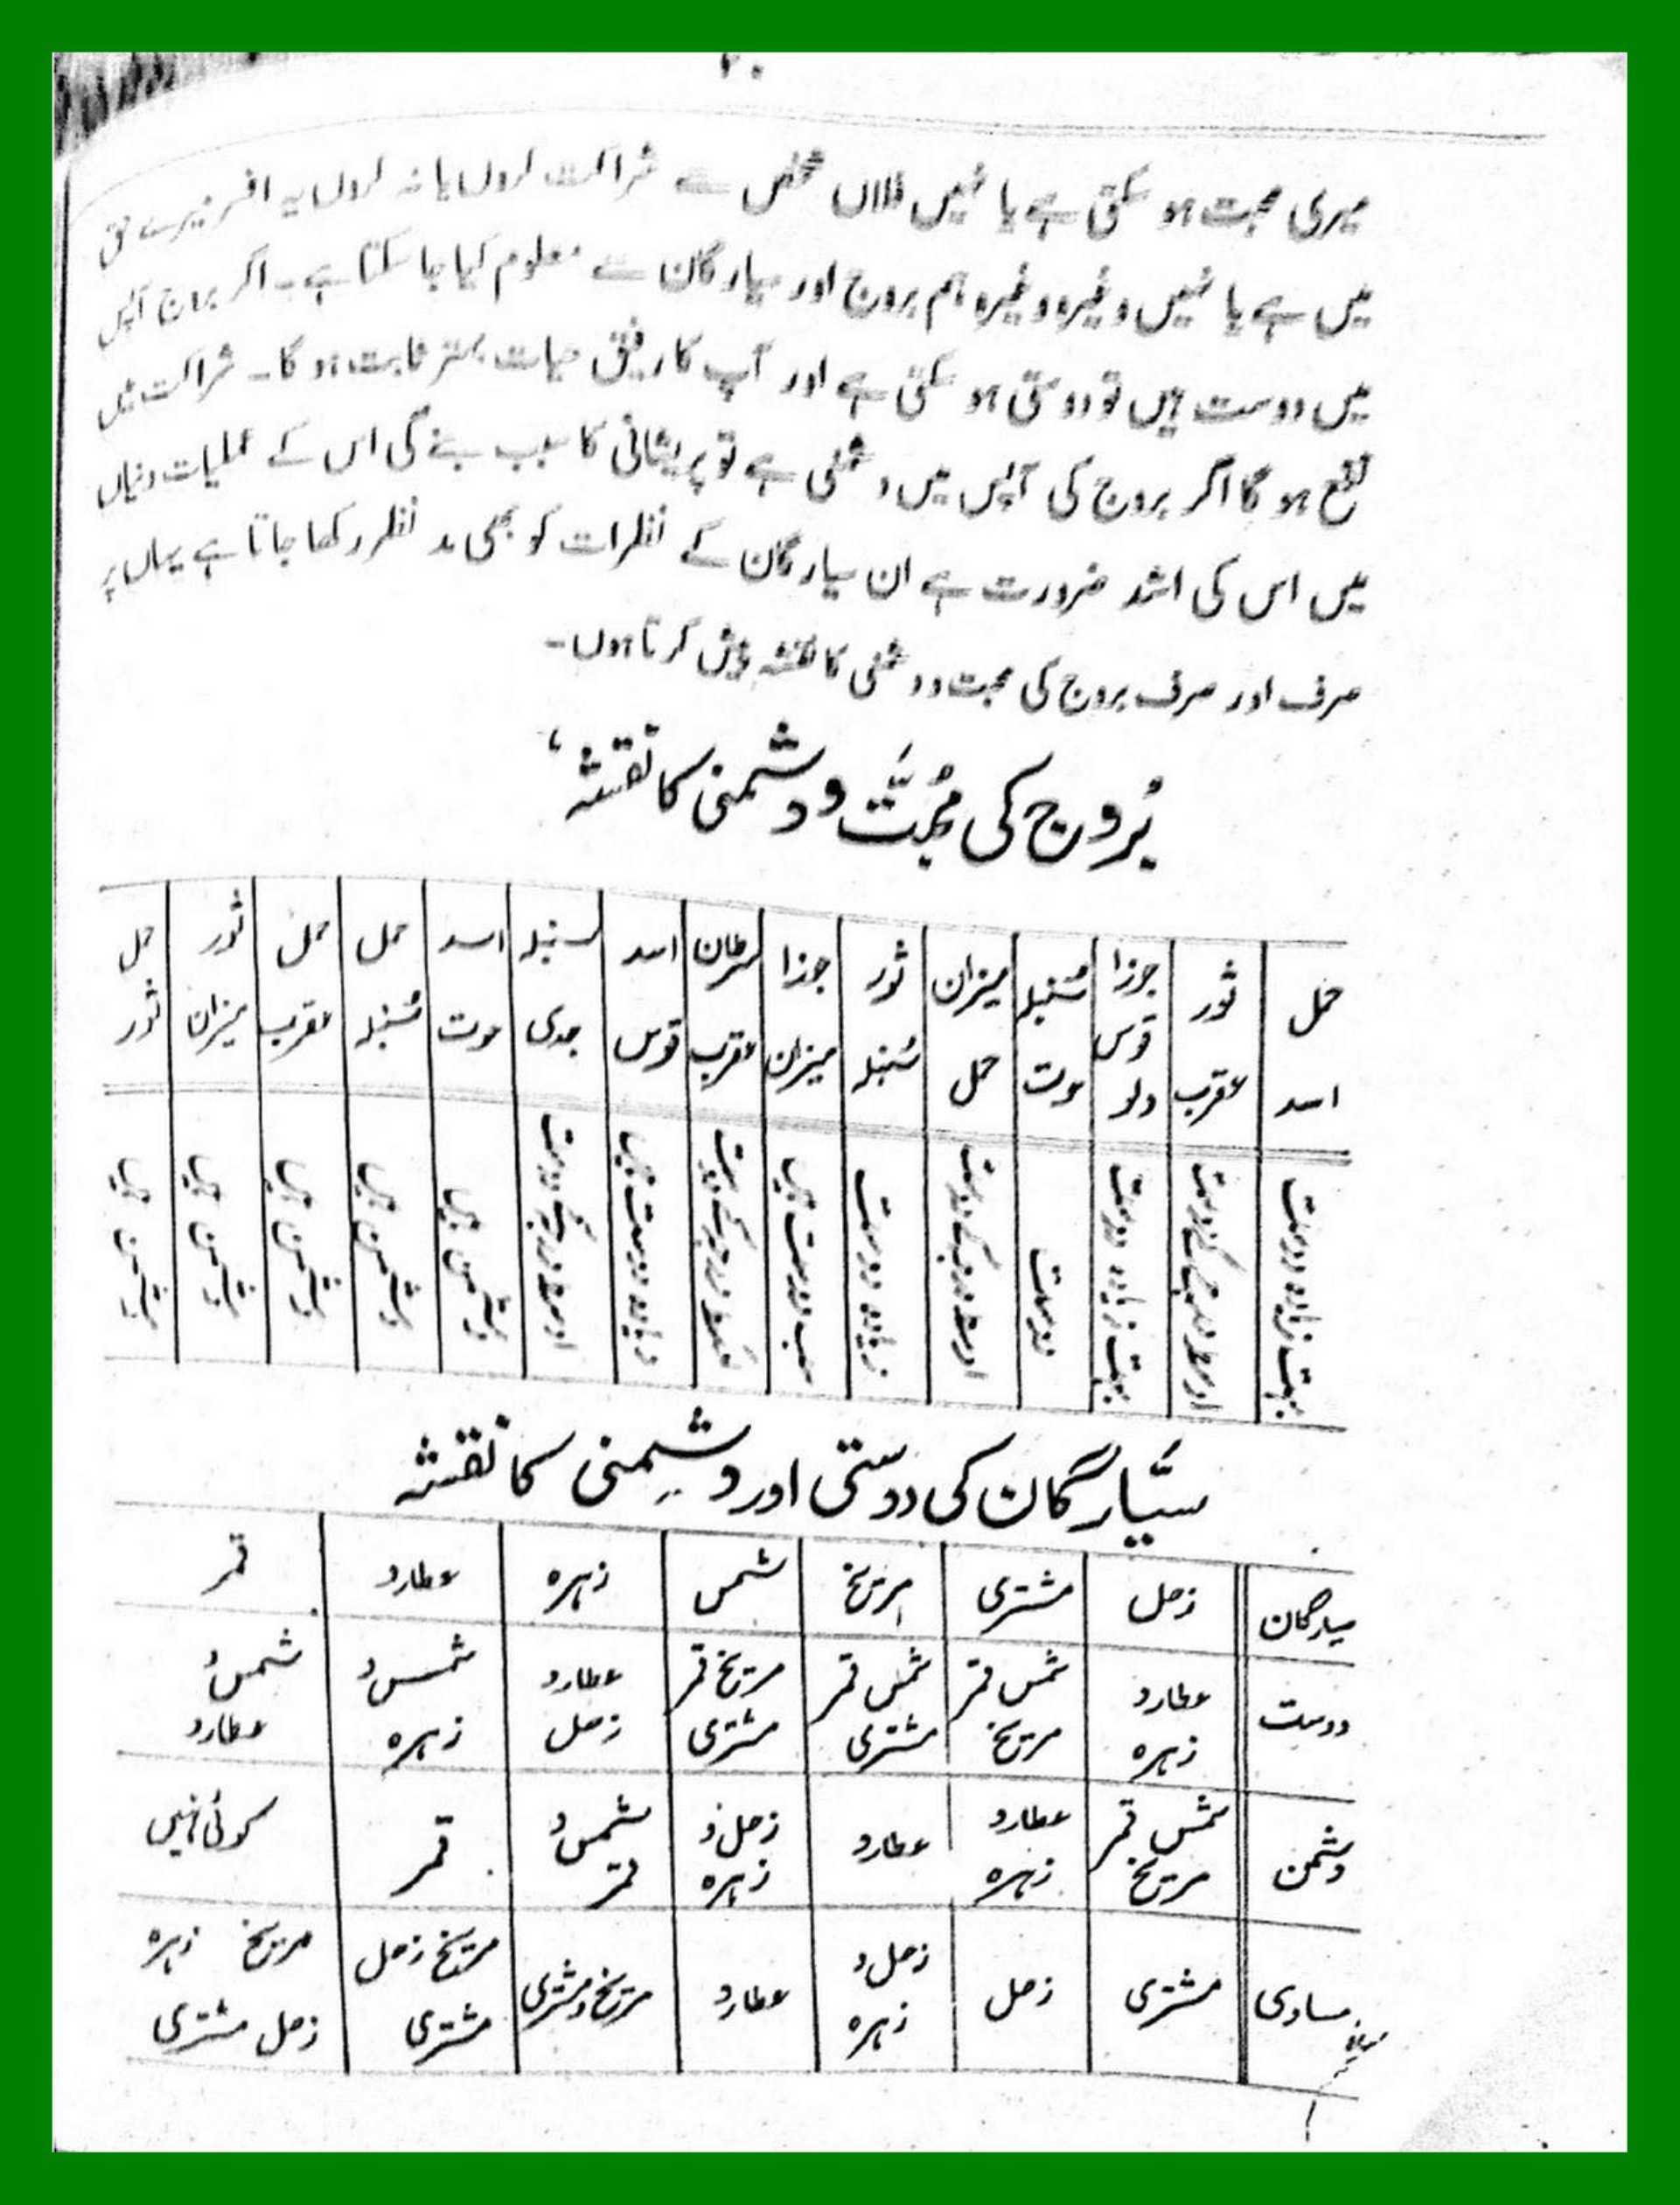 ۲۰
میری محبت ہو سکتی ہے یا نہیں فلاں شخص سے شراکت کروں یا نہ کروں یہ افسر میرے حق
میں ہے یا نہیں وغیرہ وغیرہ ہم بروج اور سیارگان سے معلوم کیا جا سکتا ہے۔ اگر بروج آپس
میں دوست ہیں تو دوستی ہو سکتی ہے اور آپ کا رفیق حیات بہتر ثابت ہو گا۔ شراکت میں
نفع ہو گا اگر بروج کی آپس میں دشمنی ہے تو پریشانی کا سبب بنے گی اس کے عملیات دنیاں
میں اس کی اشد ضرورت ہے ان سیارگان کے نظرات کو بھی مد نظر رکھا جاتا ہے یہاں پر
صرف اور صرف بروج کی محبت و دشمنی کا نقشہ پیش کرتا ہوں۔
بُروج کی مُحبَّت و دشمنی کا نقشہ
حمل ثور جوزا سُنبلہ میزان ثور جوزا سرطان اسد سنبلہ اسد حمل حمل ثور حمل
اسد عقرب قوس دلو حوت حمل سُنبلہ میزان عقرب قوس جدی حوت سُنبلہ عقرب میزان ثور
بہت زیادہ دوست اوسط درجہ کے دوست بہت زیادہ دوست دوست اوسط درجہ کے دوست زیادہ دوست دوست ہیں درجہ کے دوست زیادہ دوست ہیں اوسط درجہ کے دوست دشمن ہیں دشمن ہیں دشمن ہیں دشمن ہیں دشمن ہیں
سیّارگان کی دوستی اور دشمنی کا نقشہ
سیارگان زحل مشتری مریخ شمس زہرہ عطارد قمر
دوست عطارد زہرہ شمس قمر مریخ شمس قمر مشتری مریخ قمر مشتری عطارد زحل شمس و زہرہ شمس و عطارد
دشمن شمس قمر مریخ عطارد زہرہ عطارد زحل و زہرہ شمس و قمر قمر کوئی نہیں
مساوی مشتری زحل زحل و زہرہ عطارد مریخ و مشتری مریخ زحل مشتری مریخ زہرہ زحل مشتری